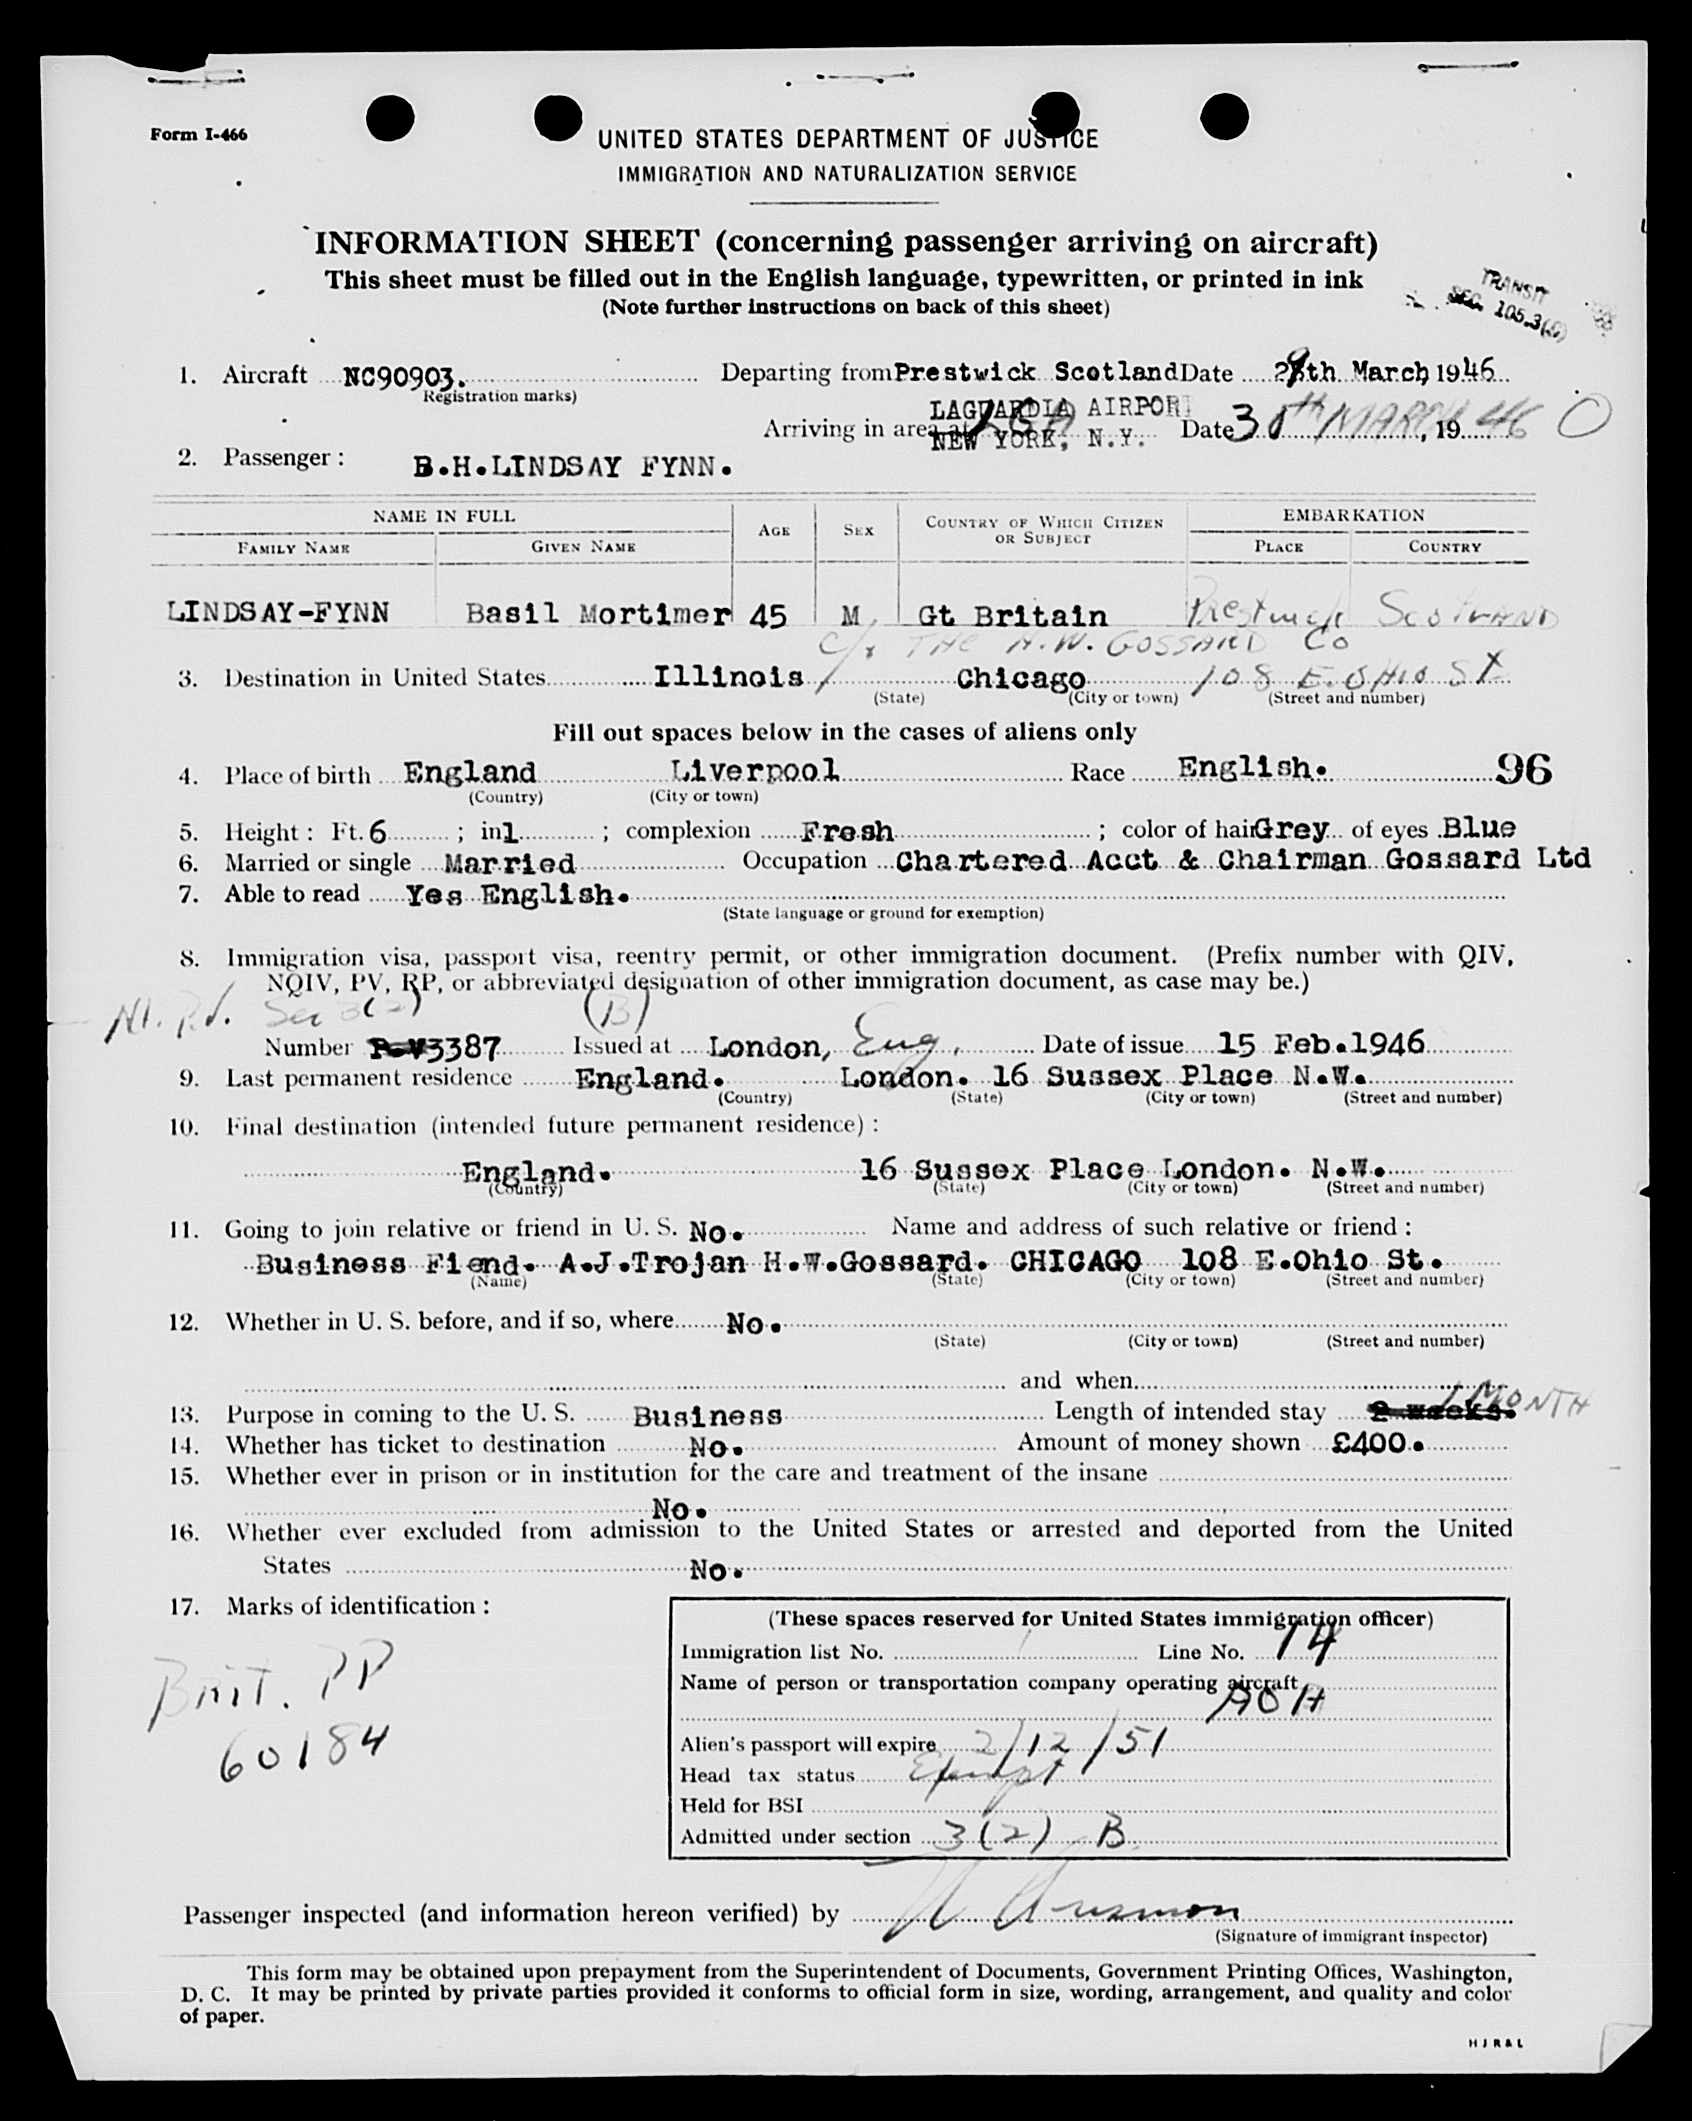 Form I-466
UNITED STATES DEPARTMENT OF JUSTICE
IMMIGRATION AND NATURALIZATION SERVICE
INFORMATION SHEET (concerning passenger arriving on aircraft)
This sheet must be filled out in the English language, typewritten, or printed in ink
(Note further instructions on back of this sheet)
TRANSIT
SEC. 105.3(c)
1. Aircraft NC90903. Departing from Prestwick Scotland Date 29th March, 1946
(Registration marks)
LAGUARDIA AIRPORT
Arriving in area at LGA Date 30th MARCH, 1946 O
NEW YORK, N.Y.
2. Passenger: B.H.LINDSAY FYNN.
NAME IN FULL AGE SEX COUNTRY OF WHICH CITIZEN OR SUBJECT EMBARKATION
FAMILY NAME GIVEN NAME PLACE COUNTRY
LINDSAY-FYNN Basil Mortimer 45 M Gt Britain Prestwick SCOTLAND
C/o THE H.W. GOSSARD Co
3. Destination in United States Illinois / Chicago 108 E. OHIO St
(State) (City or town) (Street and number)
Fill out spaces below in the cases of aliens only
4. Place of birth England Liverpool Race English. 96
(Country) (City or town)
5. Height: Ft. 6 ; in 1 ; complexion Fresh ; color of hair Grey of eyes Blue
6. Married or single Married Occupation Chartered Acct & Chairman Gossard Ltd
7. Able to read Yes English.
(State language or ground for exemption)
8. Immigration visa, passport visa, reentry permit, or other immigration document. (Prefix number with QIV,
NQIV, PV, RP, or abbreviated designation of other immigration document, as case may be.)
Sec 3(2) (B)
Number P.V3387 Issued at London, Eng. Date of issue 15 Feb.1946
9. Last permanent residence England. London. 16 Sussex Place N.W.
(Country) (State) (City or town) (Street and number)
10. Final destination (intended future permanent residence):
England. 16 Sussex Place London. N.W.
(Country) (State) (City or town) (Street and number)
11. Going to join relative or friend in U. S. No. Name and address of such relative or friend:
Business Fiend. A.J.Trojan H.W.Gossard. CHICAGO 108 E.Ohio St.
(Name) (State) (City or town) (Street and number)
12. Whether in U. S. before, and if so, where No.
(State) (City or town) (Street and number)
and when
13. Purpose in coming to the U. S. Business Length of intended stay 2 weeks. 1 MONTH
14. Whether has ticket to destination No. Amount of money shown £400.
15. Whether ever in prison or in institution for the care and treatment of the insane
No.
16. Whether ever excluded from admission to the United States or arrested and deported from the United
States No.
17. Marks of identification:
BRIT. PP
60184
(These spaces reserved for United States immigration officer)
Immigration list No. Line No. 14
Name of person or transportation company operating aircraft
AOA
Alien's passport will expire 2/12/51
Head tax status Exempt
Held for BSI
Admitted under section 3(2) B
Passenger inspected (and information hereon verified) by
(Signature of immigrant inspector)
This form may be obtained upon prepayment from the Superintendent of Documents, Government Printing Offices, Washington,
D. C. It may be printed by private parties provided it conforms to official form in size, wording, arrangement, and quality and color
of paper.
H J R & L